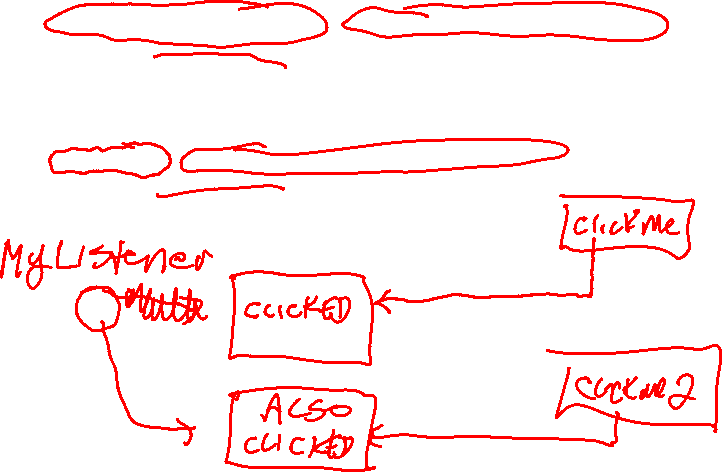 clickMe
MyListener
CLICKED
clickMe2
ALSO
CLICKED